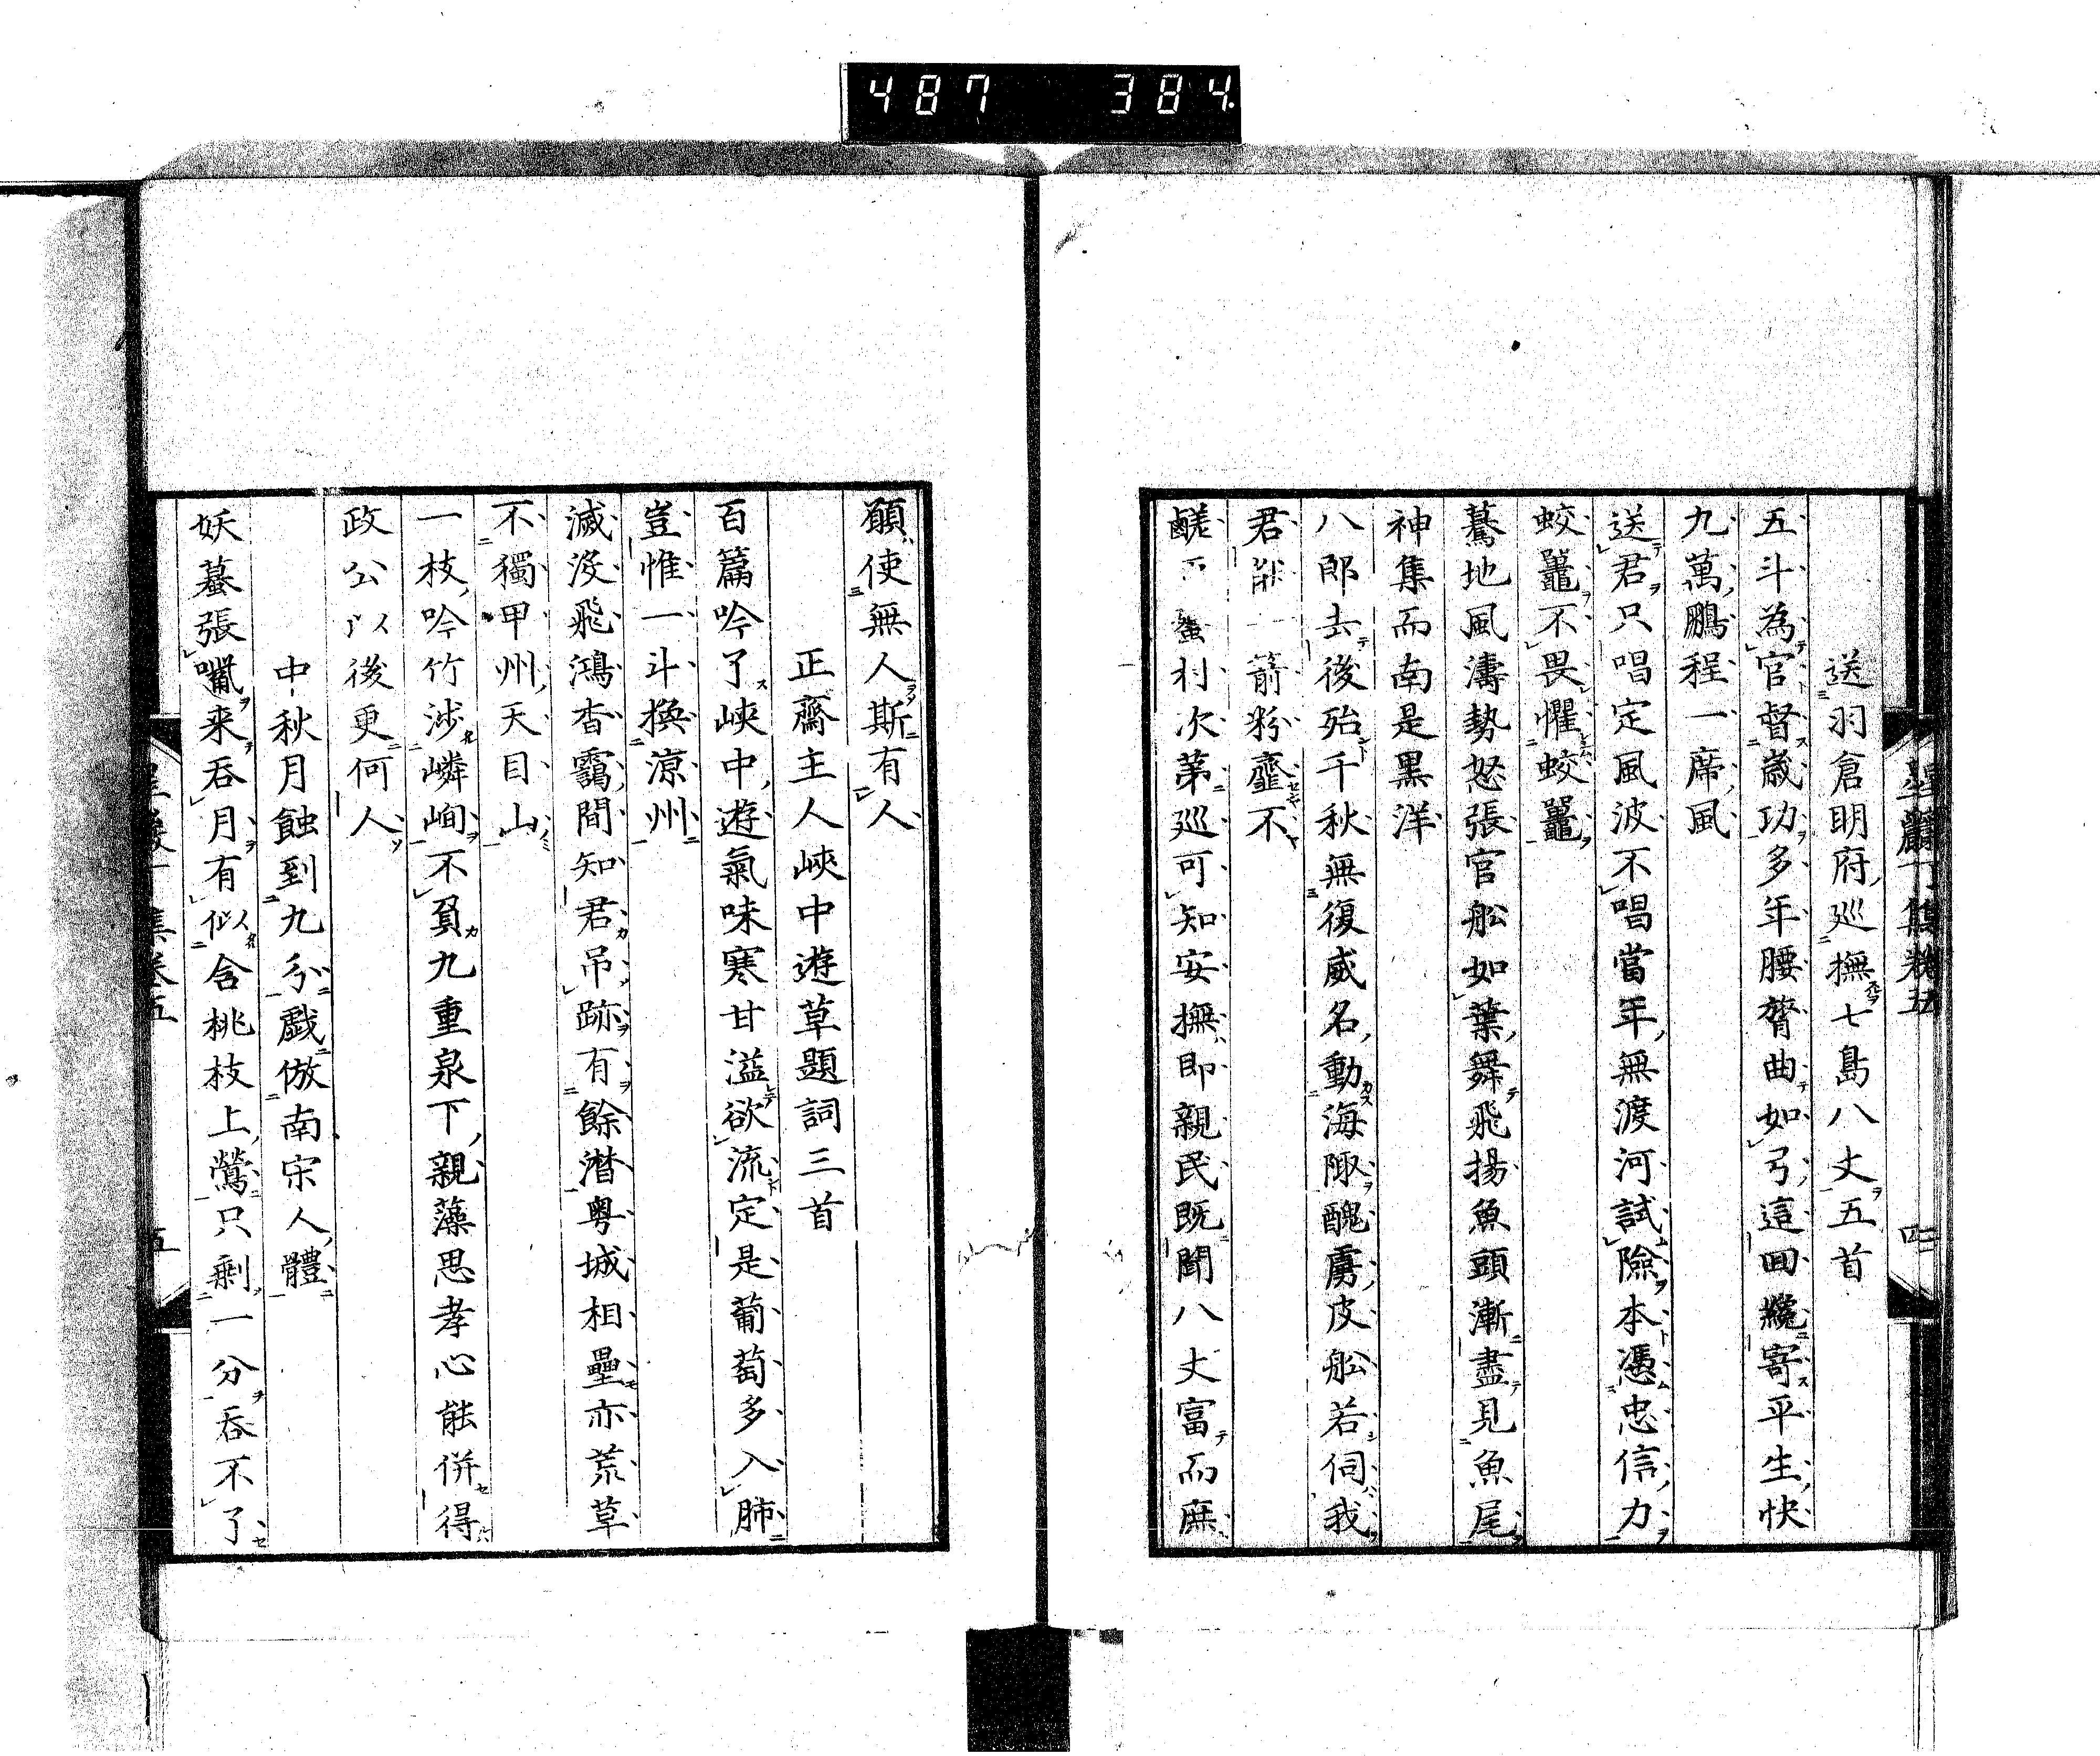 487 384
送羽倉明府巡撫七島八丈五首
五斗為官督歳功多年腰膂曲如弓這回纔寄平生快
九萬鵬程一席風
送君只唱定風波不唱當年無渡河試險本憑忠信力
蛟鼉不畏懼蛟鼉
驀地風濤勢怒張官舩如葉舞飛揚魚頭漸盡見魚尾
神集而南是黒洋
八郎去後殆千秋無復威名動海陬醜虜皮舩若伺我
君 箭粉虀不
醝 蜑村次第巡可知安撫即親民既聞八丈富而庶
願使無人斯有人
正齋主人峽中遊草題詞三首
百篇吟了峽中遊氣味寒甘溢欲流定是葡萄多入肺
豈惟一斗換涼州
滅没飛鴻杳靄間知君吊跡有餘潸粤城相壘亦荒草
不獨甲州天目山
一枝吟竹渉嶙峋不負九重泉下親藻思孝心能併得
政公以後更何人
中秋月蝕到九分戯倣南宋人體
妖蟇張嘴来呑月有似含桃枝上鶯只剩一分呑不了
集巻五
五